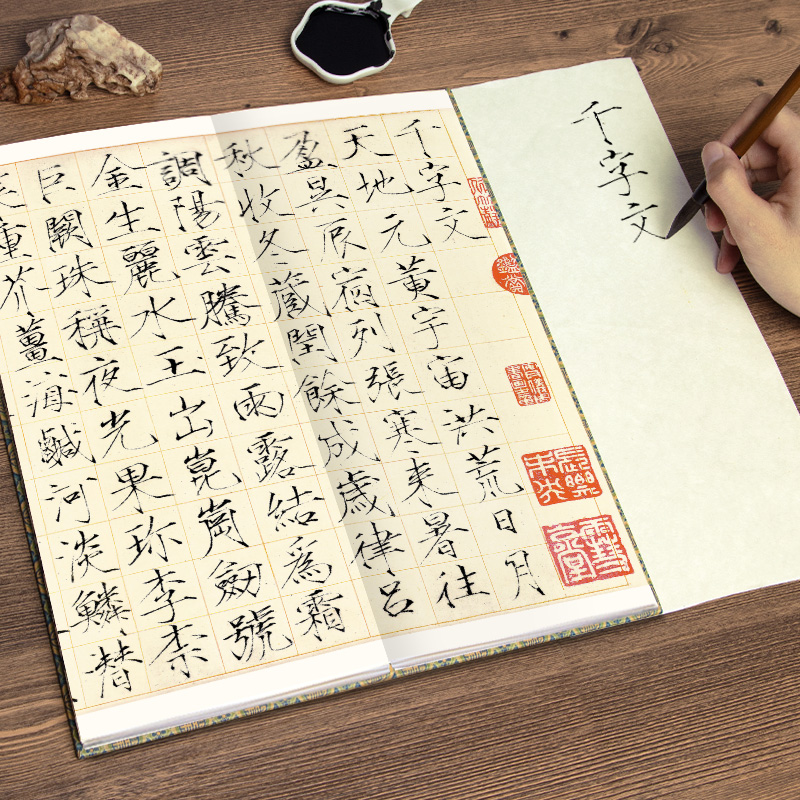 千字文
千字文
天地元黃宇宙洪荒日月
盈昃辰宿列張寒来暑往
秋收冬蔵閏餘成歲律呂
調陽雲騰致雨露結爲霜
金生麗水玉出崑崗劒號
巨闕珠稱夜光果珍李柰
菜重芥薑海鹹河淡鱗潛